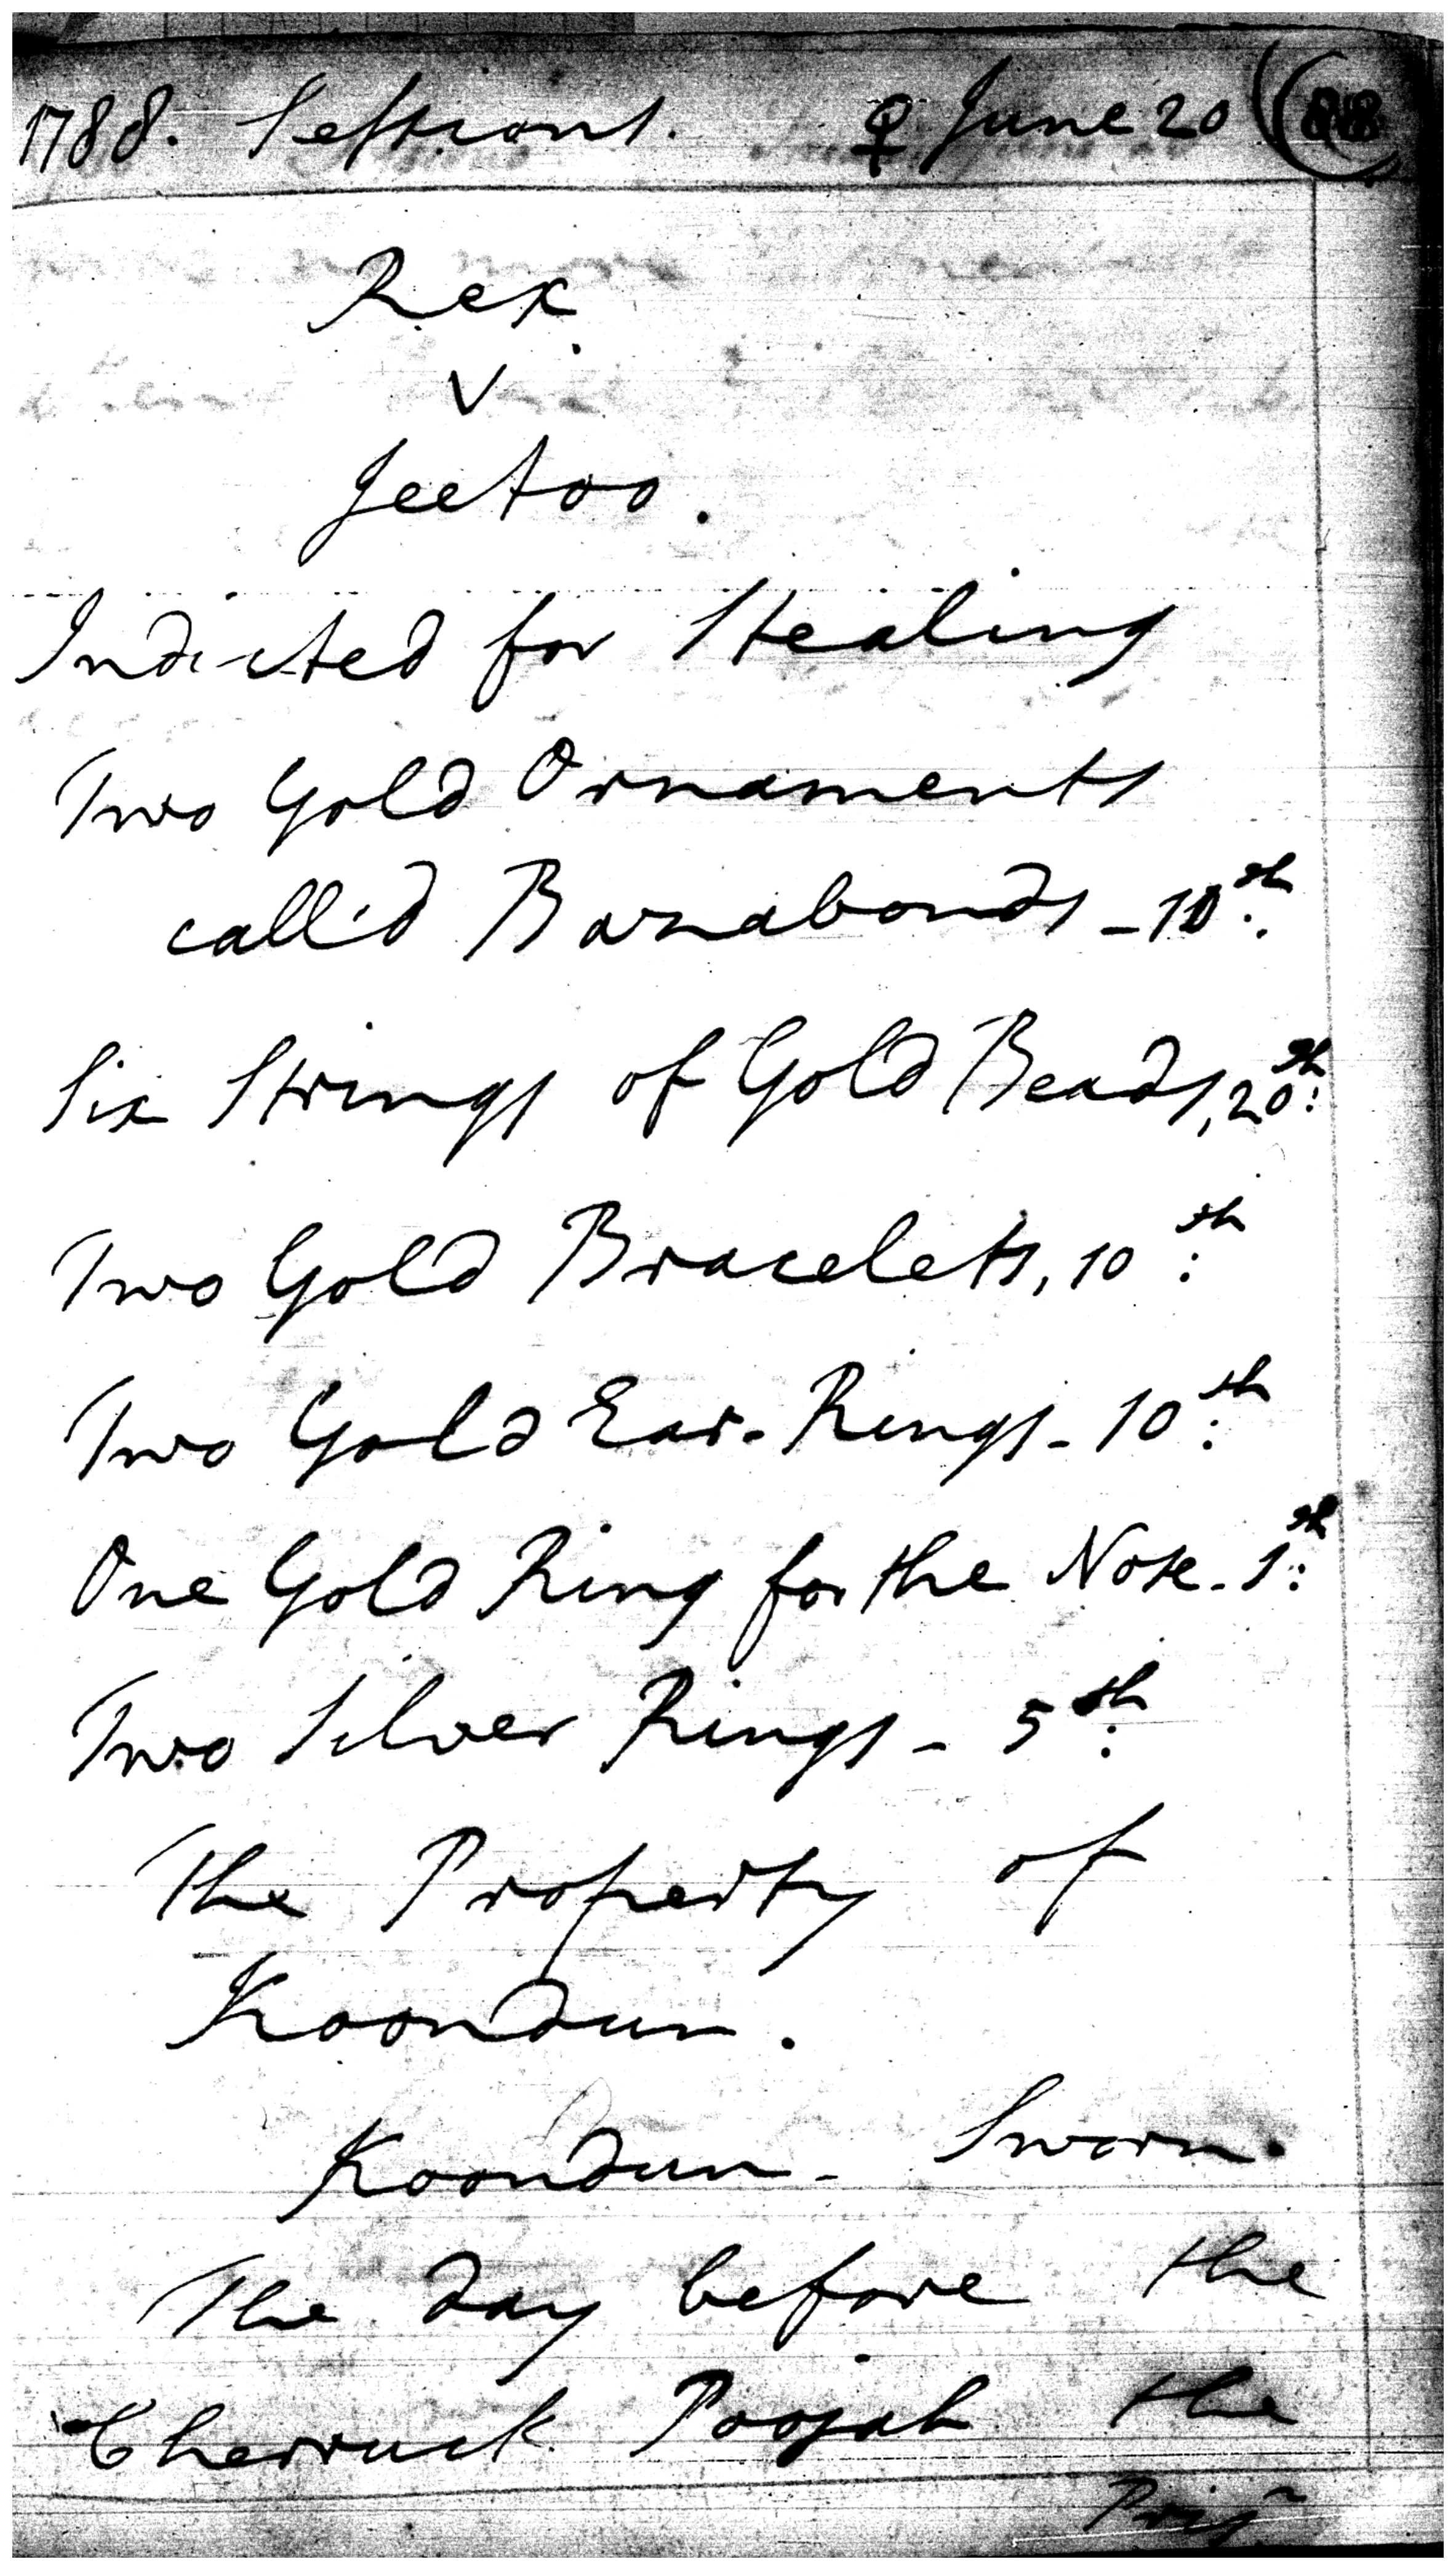 1788. Sessions. ♀ June 20 (88)
Rex
V
Jeetoo.
Indicted for Stealing
Two Gold Ornaments
call'd Bazabonds - 10sh:
Six Strings of Gold Beads, 20sh:
Two Gold Bracelets, 10sh:
Two Gold Ear-Rings - 10sh:
One Gold Ring for the Nose - 1sh:
Two Silver Rings - 5sh:
The Property of
Koondun.
Koondun - Sworn.
The day before the
Cherruck Poojah the
Prisr